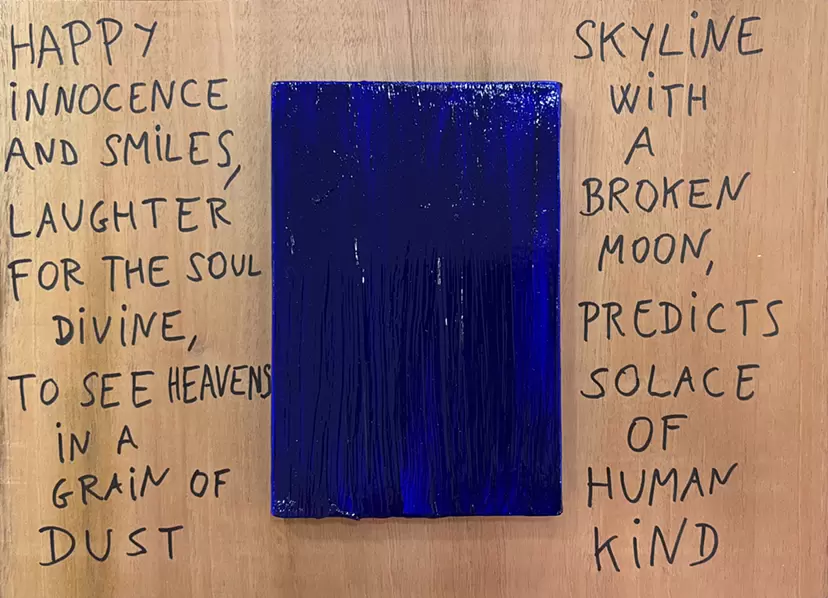 HAPPY
iNNOCENCE
AND SMiLES,
LAUGHTER
FOR THE SOUL
DiViNE,
TO SEE HEAVENS
iN A
GRAiN OF
DUST
SKYLiNE
WiTH
A
BROKEN
MOON,
PREDiCTS
SOLACE
OF
HUMAN
KiND